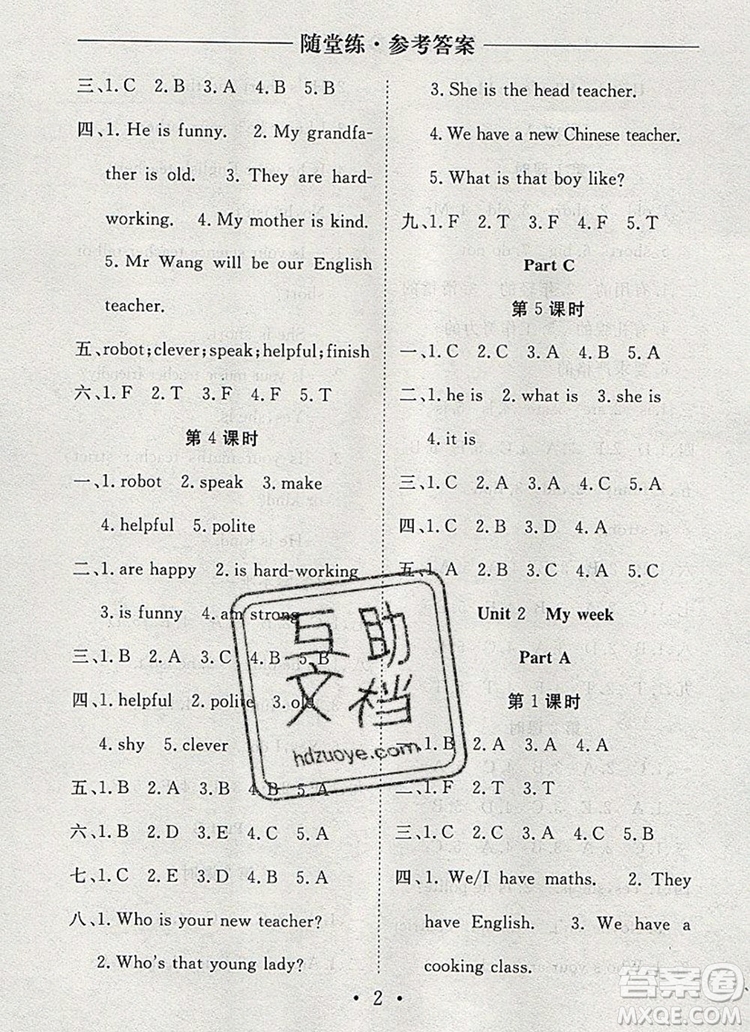 随堂练·参考答案
三、1. C 2. B 3. A 4. B 5. B
四、1. He is funny. 2. My grandfa-
ther is old. 3. They are hard-
working. 4. My mother is kind.
5. Mr Wang will be our English
teacher.
五、robot;clever;speak;helpful;finish
六、1. F 2. T 3. F 4. F 5. T
第 4 课时
一、1. robot 2. speak 3. make
4. helpful 5. polite
二、1. are happy 2. is hard-working
3. is funny 4. am strong
三、1. B 2. A 3. B 4. B 5. A
四、1. helpful 2. polite 3. old
4. shy 5. clever
五、1. B 2. A 3. B 4. B 5. A
六、1. B 2. D 3. E 4. C 5. A
七、1. C 2. E 3. D 4. B 5. A
八、1. Who is your new teacher?
2. Who's that young lady?
3. She is the head teacher.
4. We have a new Chinese teacher.
5. What is that boy like?
九、1. F 2. T 3. F 4. F 5. T
Part C
第 5 课时
一、1. C 2. B 3. A 4. A 5. B
二、1. he is 2. what is 3. she is
4. it is
三、1. C 2. A 3. B 4. C 5. A
四、1. C 2. B 3. D 4. A
五、1. A 2. B 3. C 4. A 5. C
Unit 2 My week
Part A
第 1 课时
1. B 2. A 3. A
二、1. F 2. T 3. T
三、1. C 2. A 3. A 4. C 5. B
四、1. We/I have maths. 2. They
have English. 3. We have a
cooking class.
· 2 ·
互助
文档
hdzuoye.com
答案圈
MXQE.COM